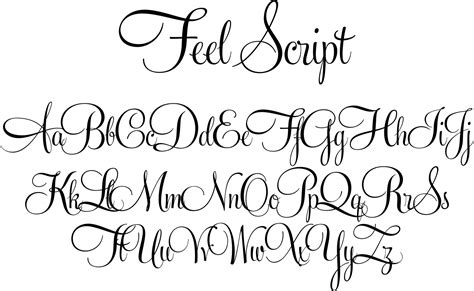 Feel Script
AaBbCcDdEeFfGgHhIiJj
KkLlMmNnOoPpQqRrSs
TtUuVvWwXxYyZz